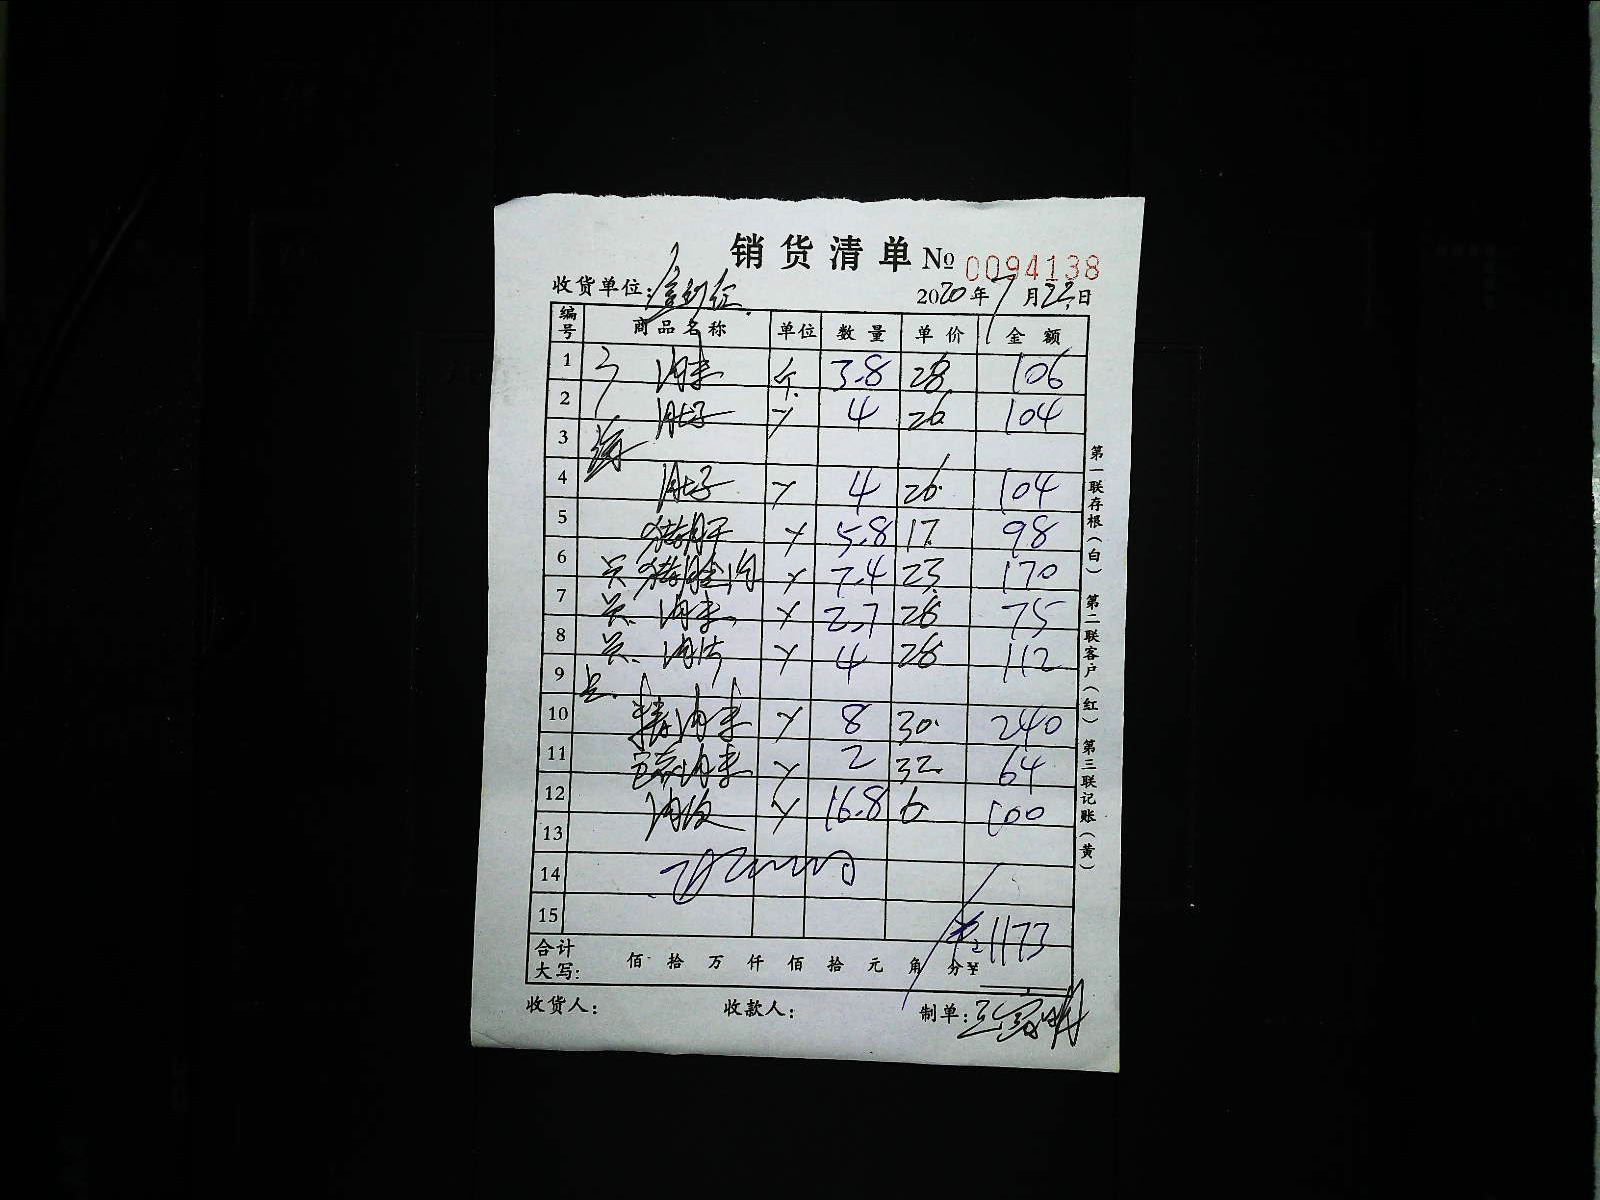 销货清单 № 0094138
收货单位:
2020年7月22日
编号 商品名称 单位 数量 单价 金额
1 肉末 斤 3.8 28 106
2 肚子 〃 4 26 104
3
4 肚子 〃 4 26 104
5 猪肝 〃 5.8 17 98
6 猪 肉 〃 7.4 23 170
7 肉末 〃 2.7 28 75
8 肉片 〃 4 28 112
9
10 精肉末 〃 8 30 240
11 肉末 〃 2 32 64
12 肉皮 〃 16.8 6 100
13
14
15
1173
合计
大写: 佰 拾 万 仟 佰 拾 元 角 分 ¥
收货人: 收款人: 制单:
第一联存根(白) 第二联客户(红) 第三联记账(黄)